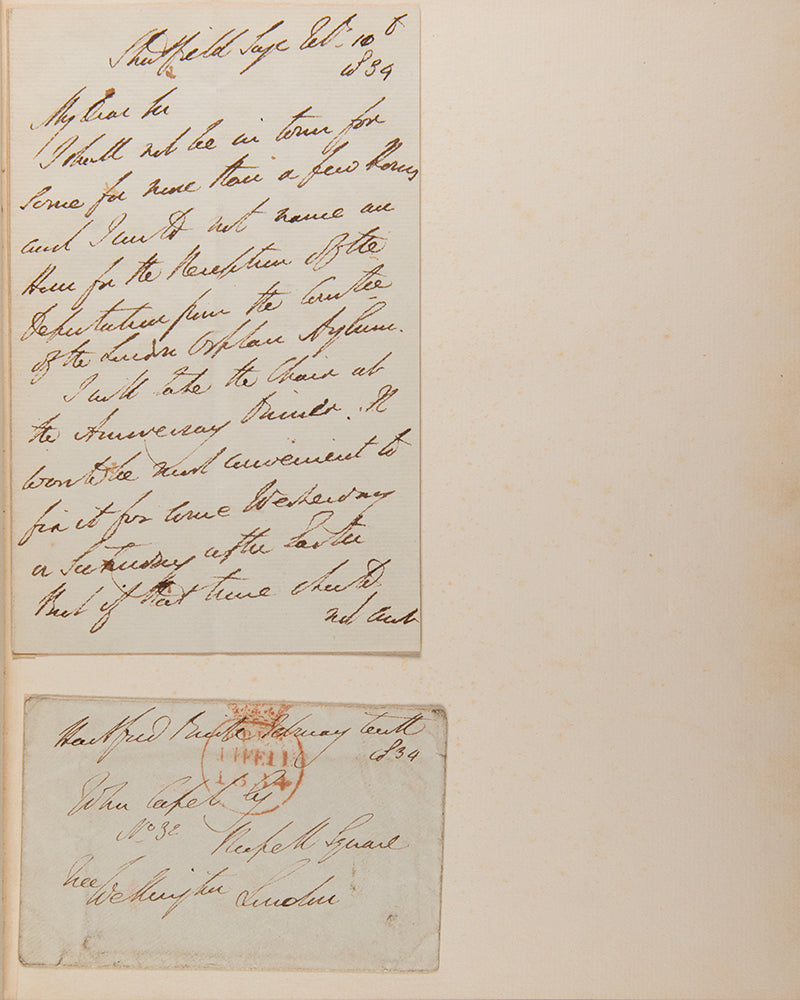 Strathfield Saye Feb. 10th
1834
My Dear Sir
I shall not be in town for
some for more than a few Hours
and I could not name an
Hour for the Reception of the
Deputation from the Comttee
of the London Orphan Asylum.
I will take the Chair at
the Anniversary Dinner. It
would be most convenient to
fix it for some Wednesday
or Saturday after Easter
But if that time should
not suit
Hartford Bridge February tenth
1834
FREE
11 FE 11
1834
John Capel Esq
No 32 Russell Square
London
Free
Wellington